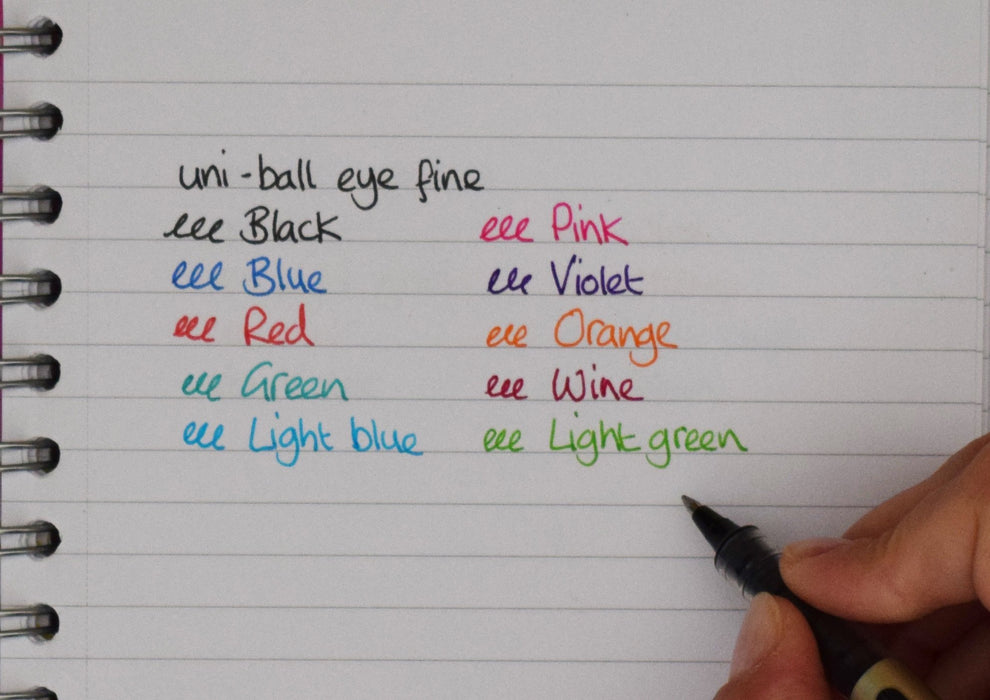 uni-ball eye fine
eee Black eee Pink
eee Blue eee Violet
eee Red eee Orange
eee Green eee Wine
eee Light blue eee Light green